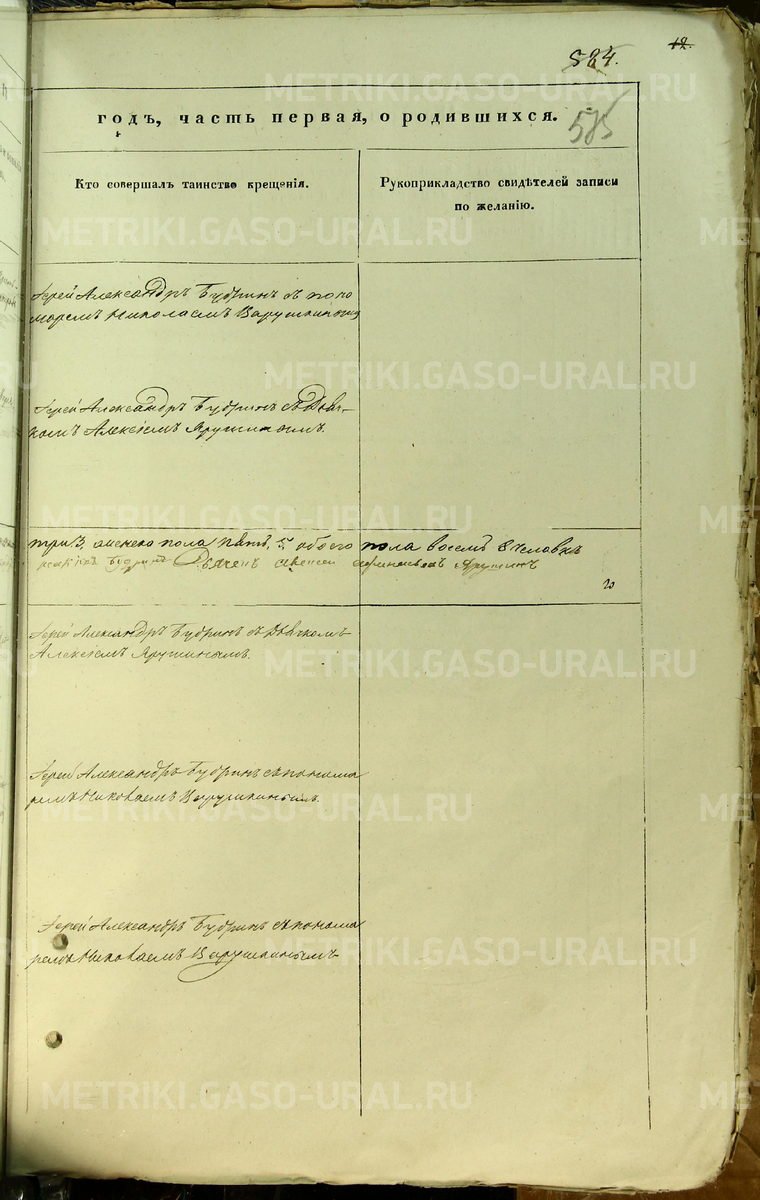 12.
584.
585
годъ, часть первая, о родившихся.
Кто совершалъ таинство крещенія.
Рукоприкладство свидѣтелей записи
по желанію.
Іерей Александръ Будринъ съ поно
маремъ Николаемъ Варушкинымъ
Іерей Александръ Будринъ съ Дьяч-
комъ Алексіемъ Ярушинымъ.
три 3, женско пола пять, 5, обоего пола восемь 8 человѣкъ
Будринъ Дьячекъ Алексей Ярушинъ
20
Іерей Александръ Будринъ съ Дьячкомъ
Алексіемъ Ярушинымъ.
Іерей Александръ Будринъ съ понома
ремъ Николаемъ Варушкинымъ.
Іерей Александръ Будринъ съ понома
ремъ Николаемъ Варушкинымъ
METRIKI.GASO-URAL.RU